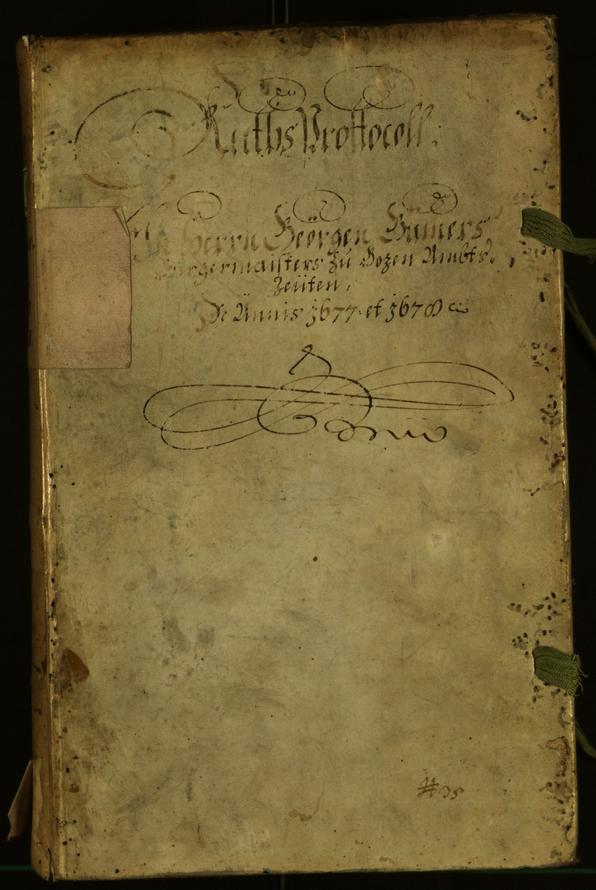 Raths Prottocoll.
Herrn Geörgen
Burgermaisters zu Bozen Ambts
Zeiiten,
De Annis 1677 et 1678